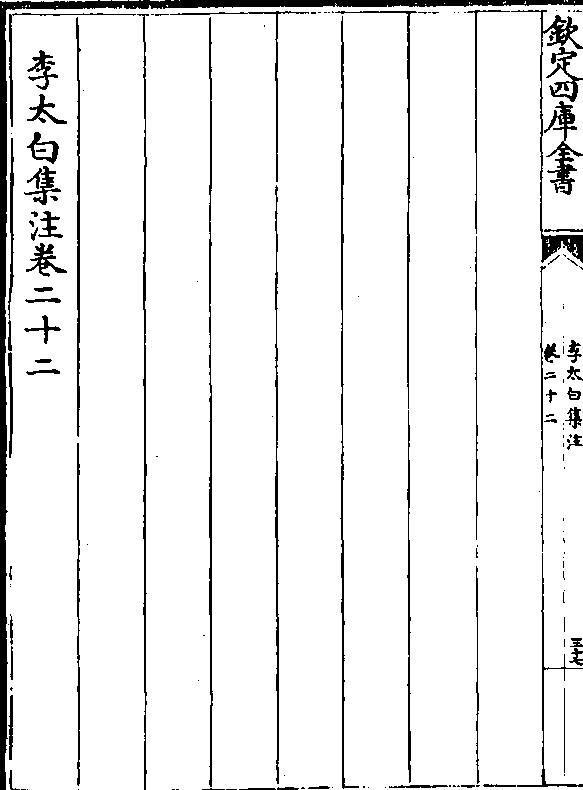 欽定四庫全書
李太白集注
卷二十二
三十七
李太白集注卷二十二